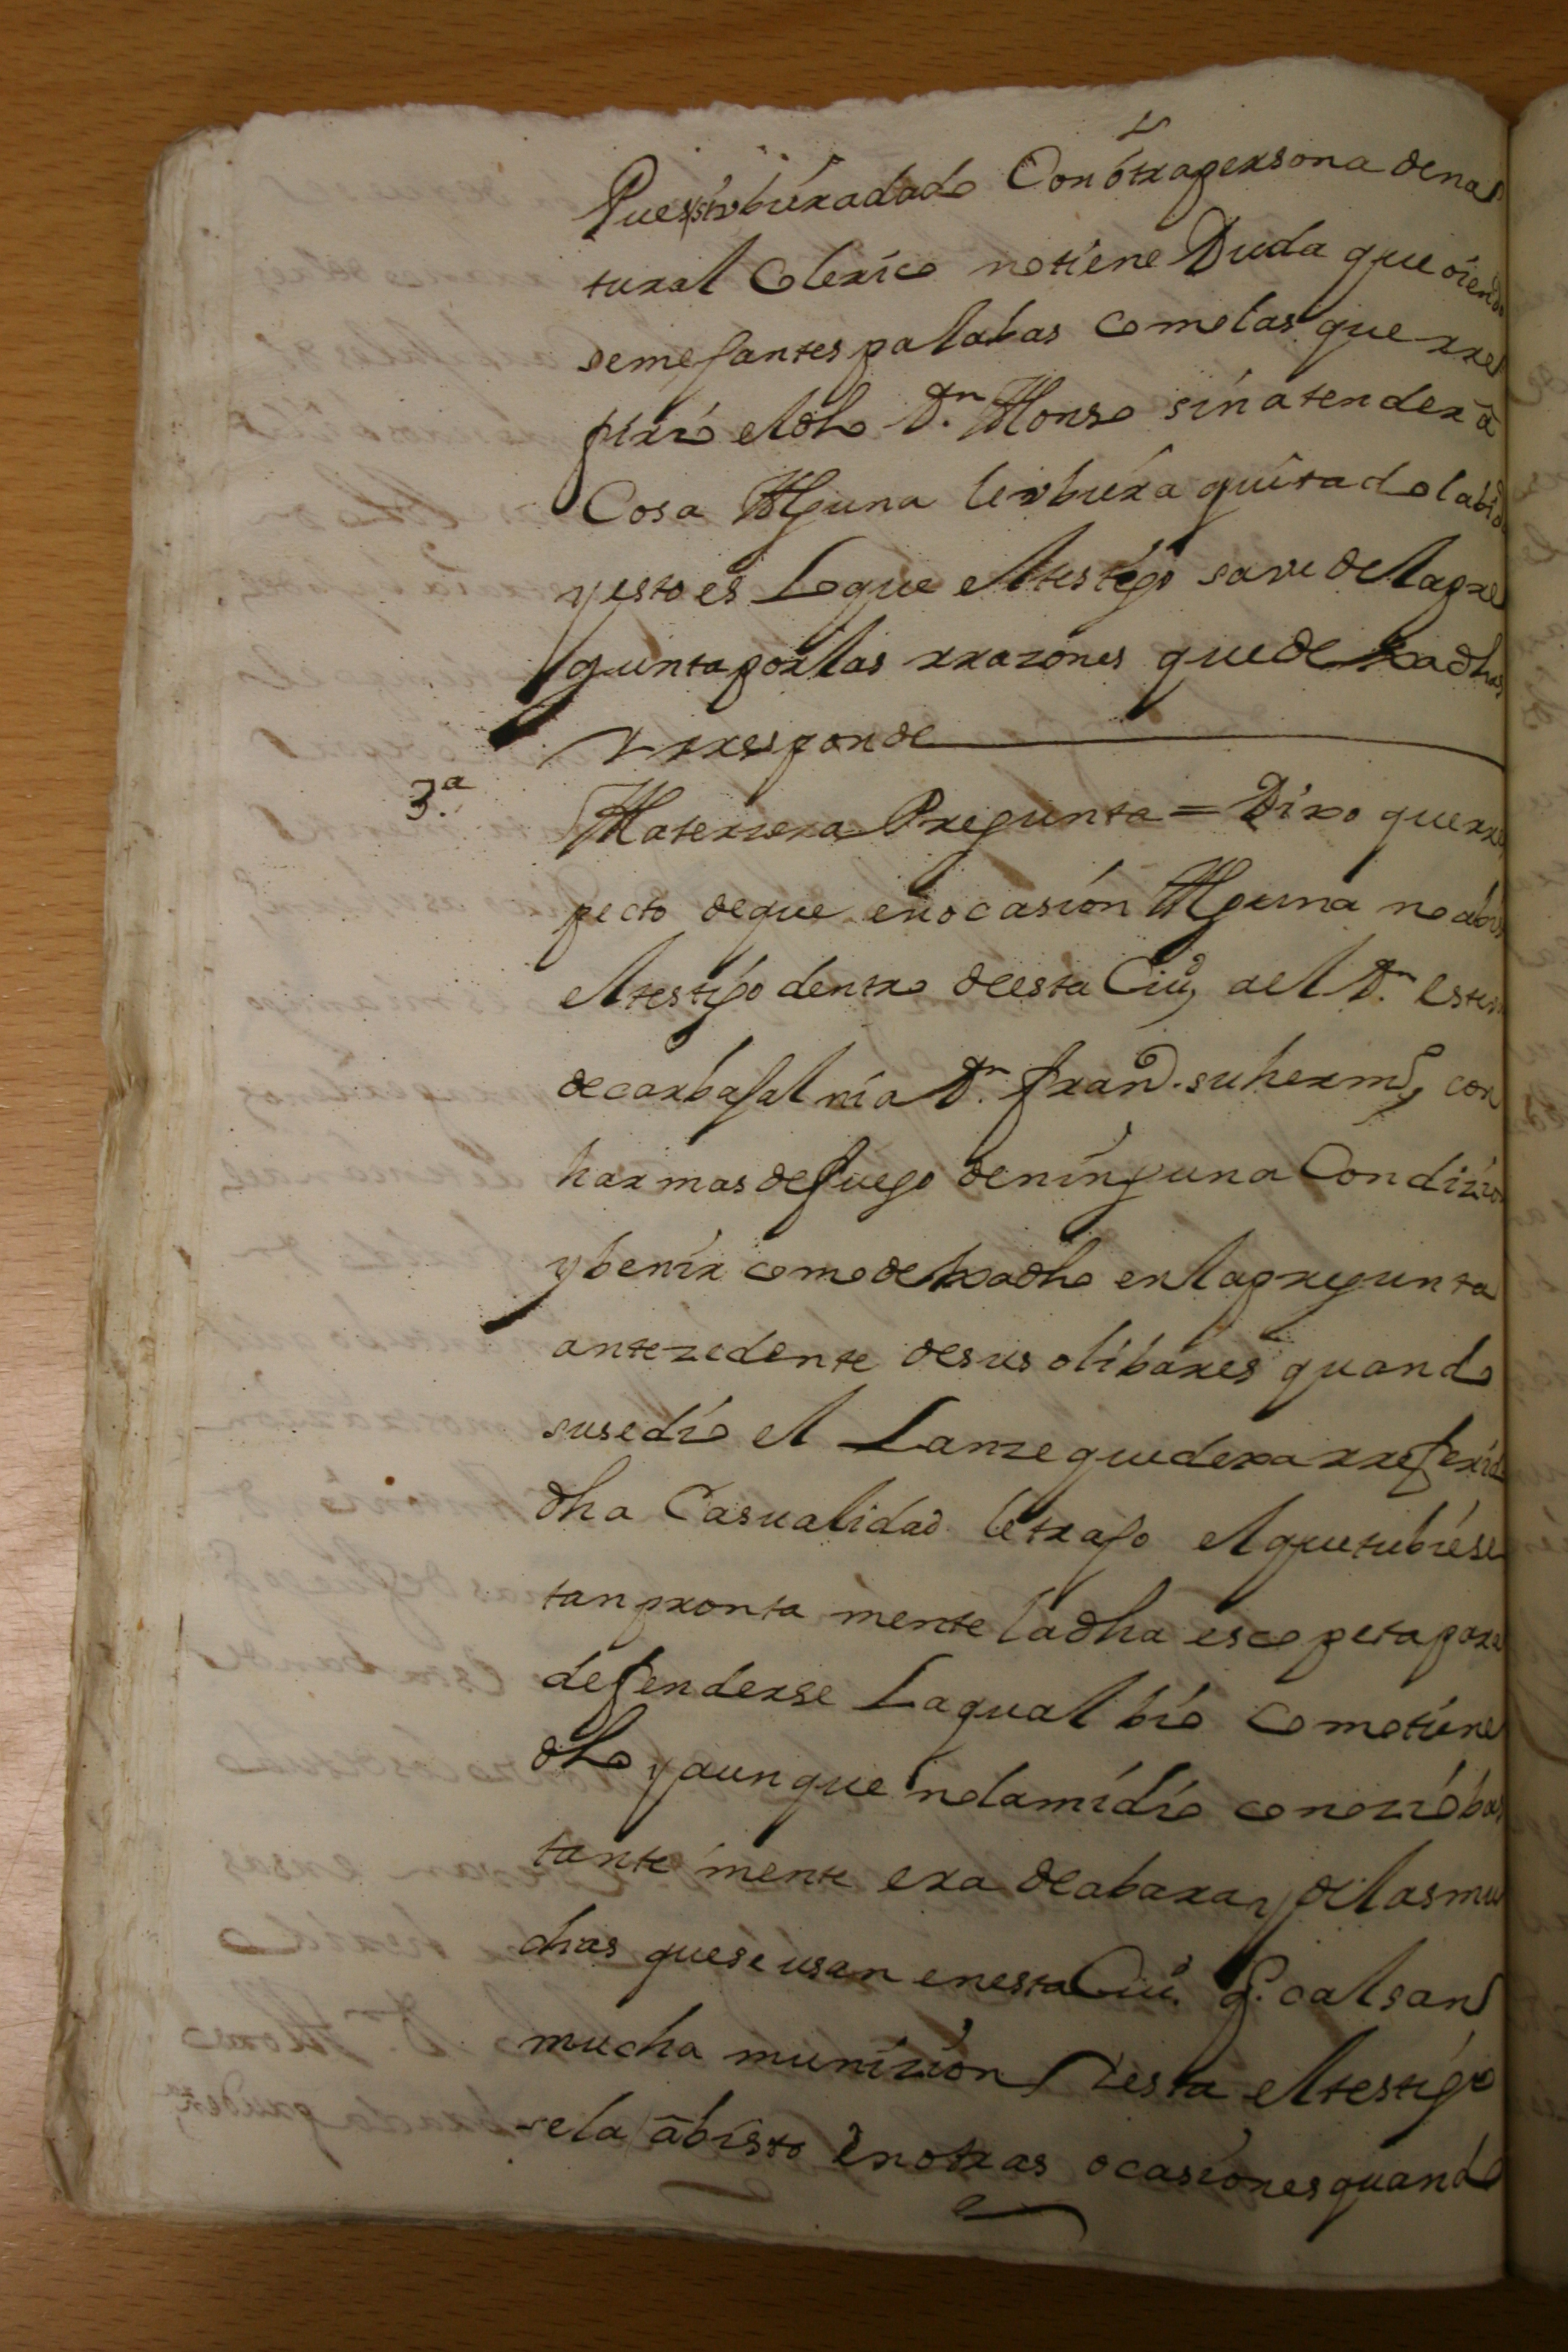 Pues si vbiera dado Con otra persona de na
tural Colerico no tiene Duda que oiendo
semejantes palabas como las que rre
firio el dho Dn. Alonso sin atender a
Cosa Alguna le vbiera quitado la bida
y esto es Lo que el testigo save de la pre
gunta por las rrazones que dexa dhas
Y rresponde
3.a A la terzera Pregunta = Dixo que rres
pecto de que en ocasion Alguna no a bis
el testigo dentro de esta Ciud, a el Dn. Esteu
de carbajal ni a Dn. Frando. su hermo, con
harmas de fuego de ninguna Condizion
y benir como dexa dho en la pregunta
antezedente de sus olibares quando
susedio el Lanze que dexa rreferido
dha Casualidad le trajo el que tubiese
tan pronta mente la dha escopeta para
defenderse La qual bio como tiene
dho y aunque no la midio conozio bas
tante mente era de a bara y de las mu
chas que se usan en esta Ciud. q. calsan
mucha munizion Y esta el testigo
se la a bisto En otras ocasiones quando